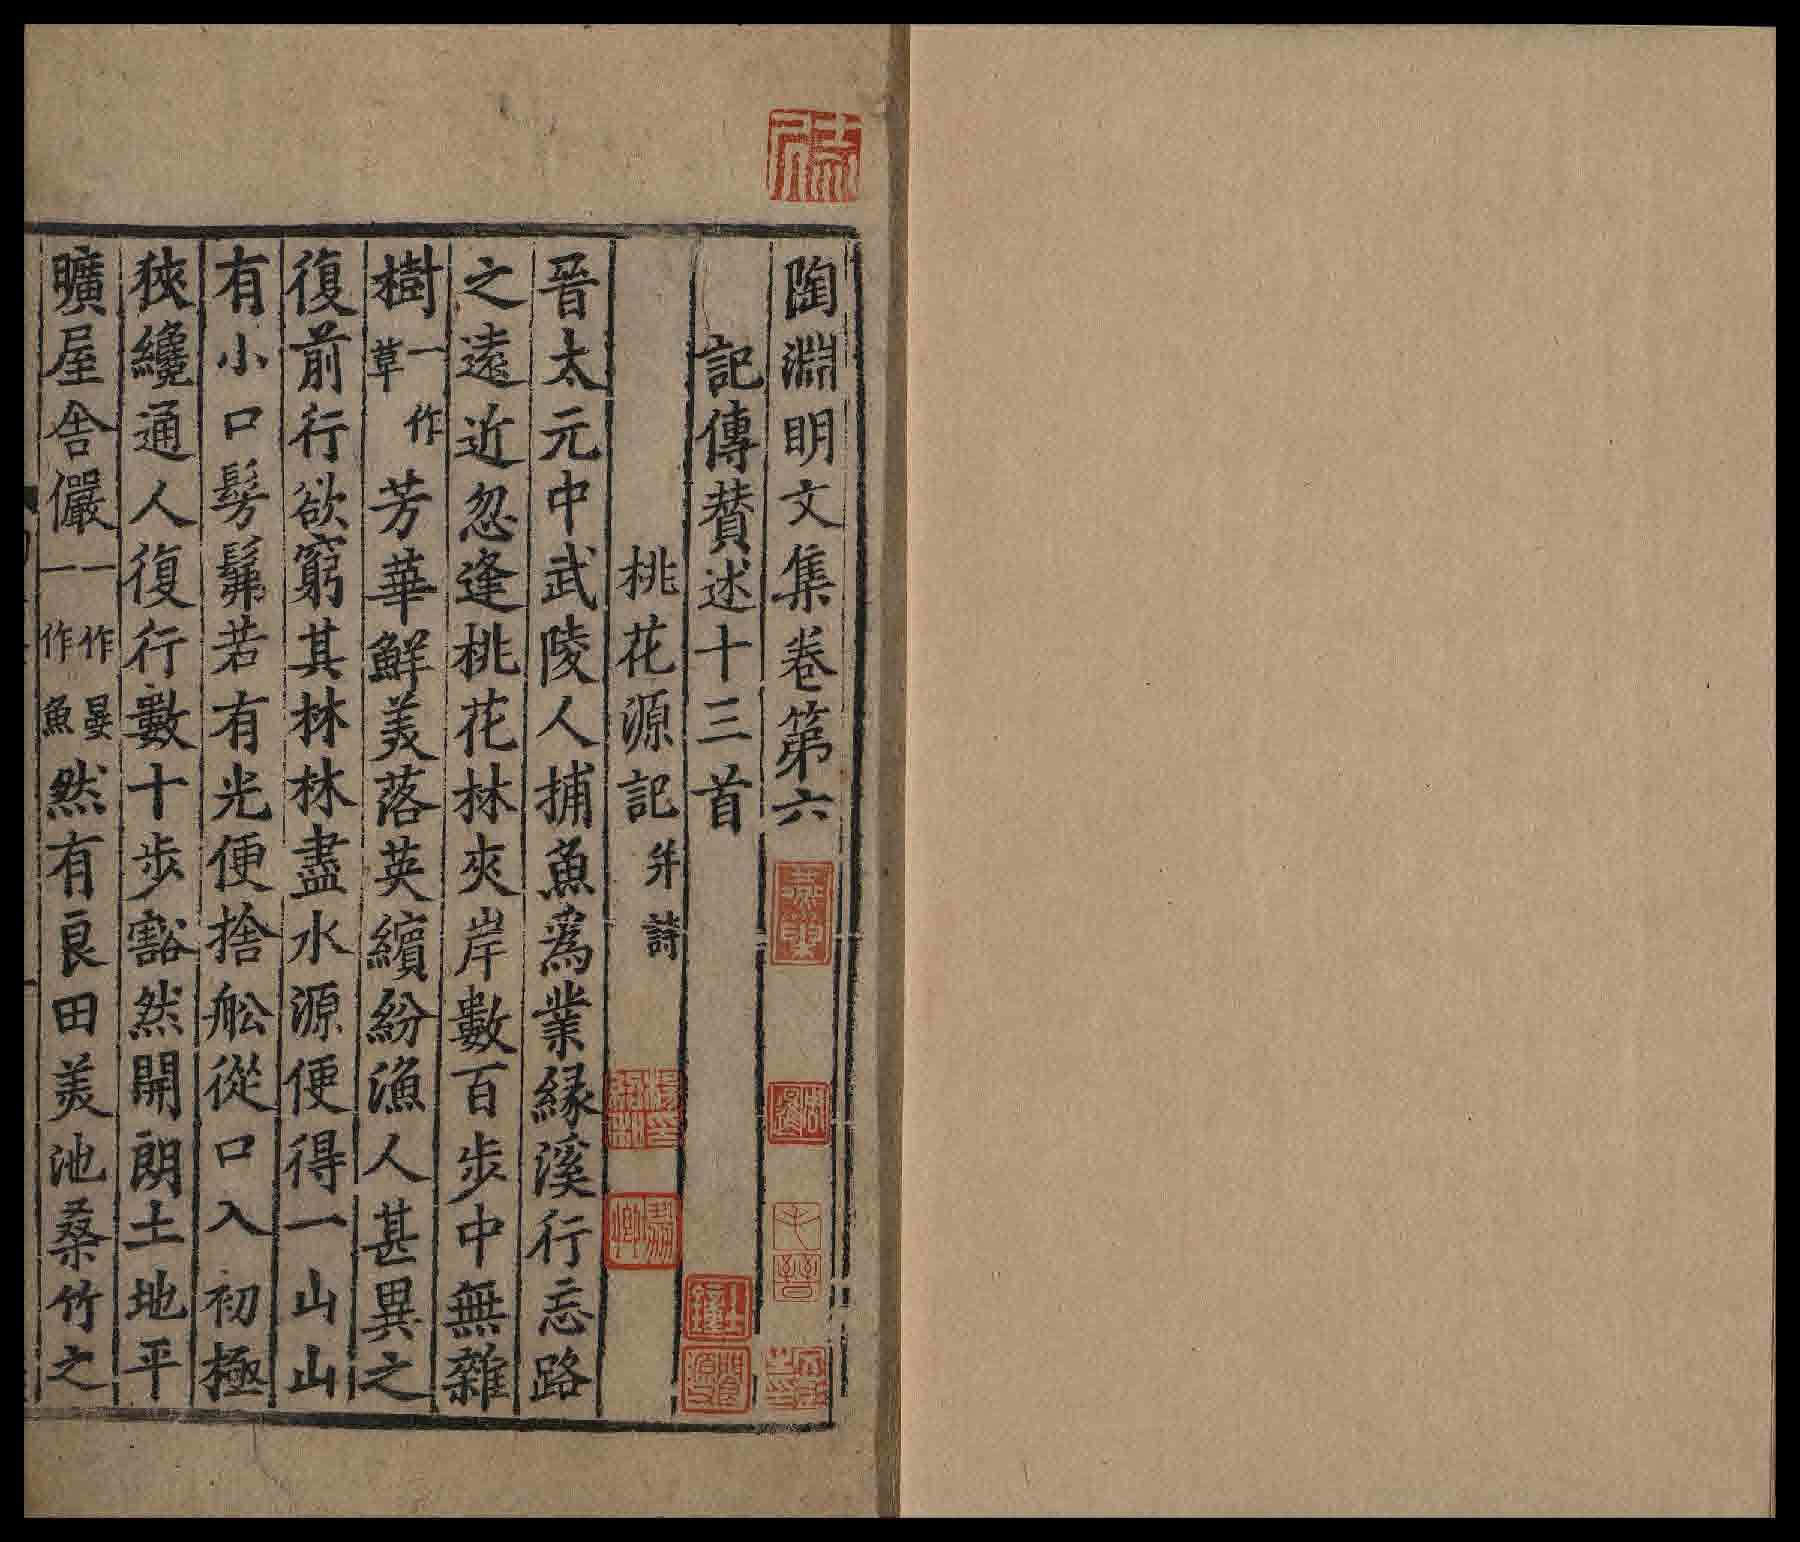 陶淵明文集卷第六
記傳贊述十三首
桃花源記 并詩
晉太元中武陵人捕魚爲業緣溪行忘路
之遠近忽逢桃花林夾岸數百步中無雜
樹一作草芳華鮮美落英繽紛漁人甚異之
復前行欲窮其林林盡水源便得一山山
有小口髣髴若有光便捨舩從口入初極
狹纔通人復行數十步豁然開朗土地平
曠屋舍儼一作晏一作魚然有良田美池桑竹之
毛晉